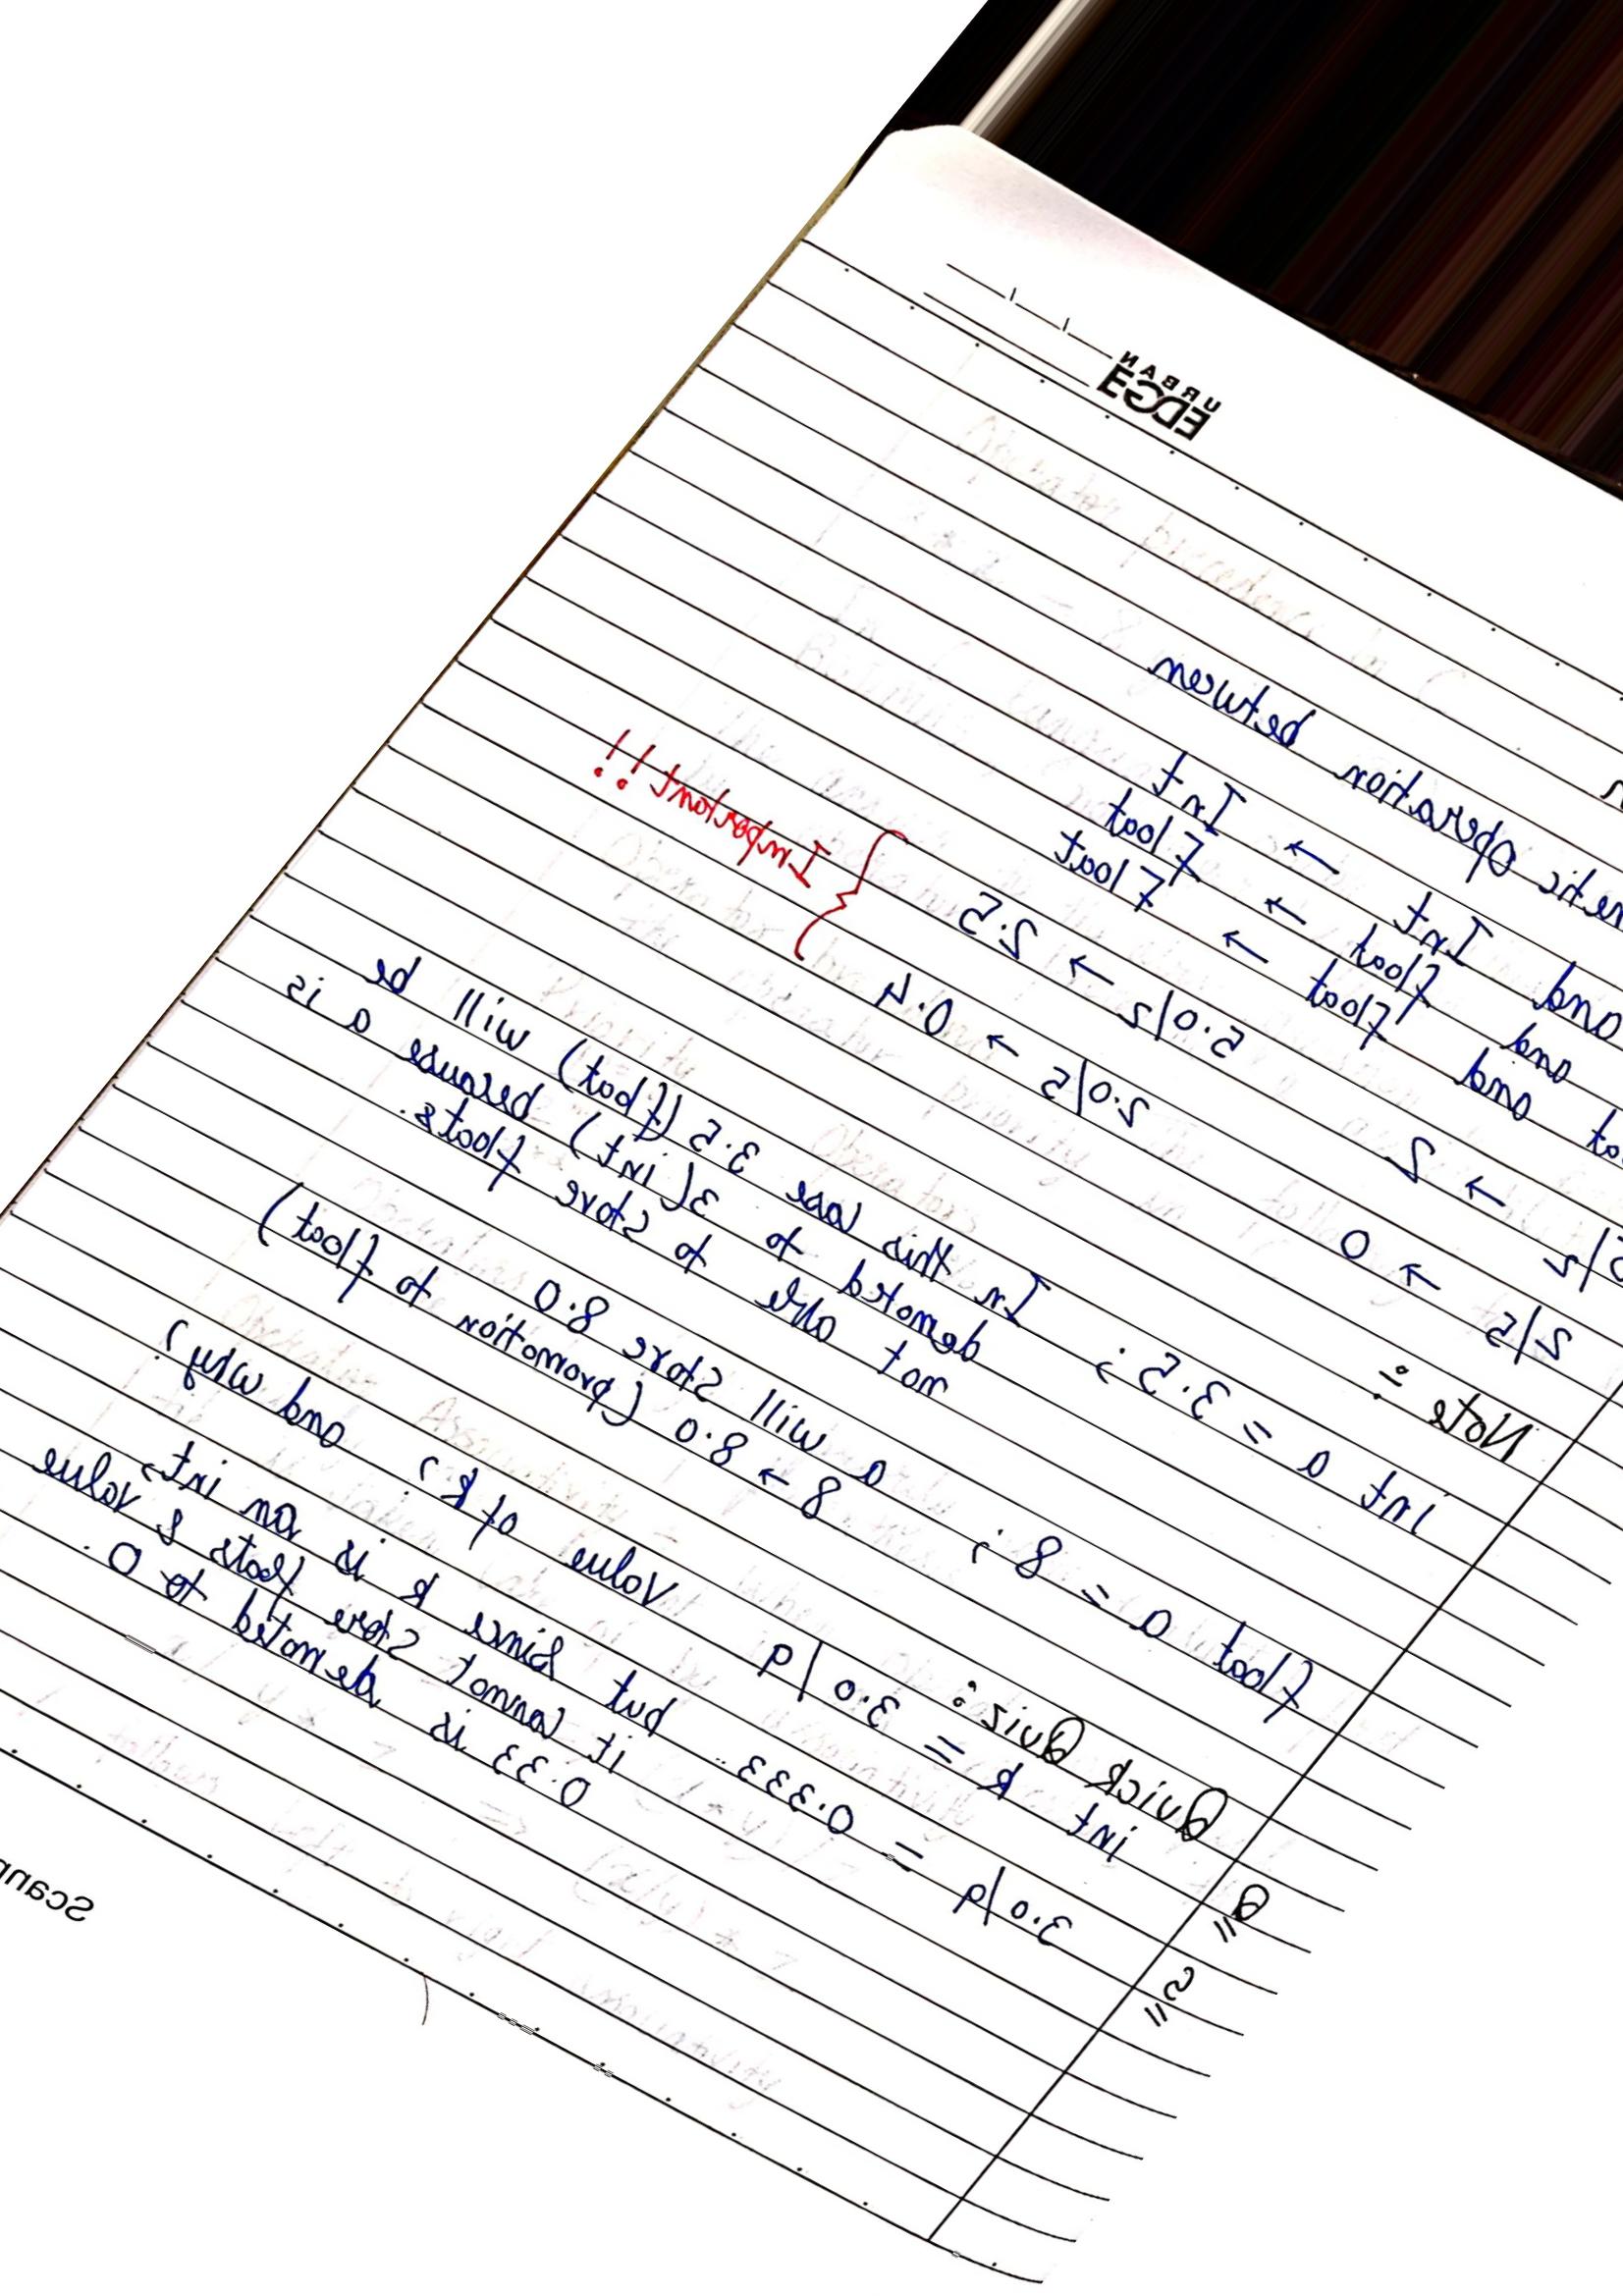 URBAN
EDGE
Operation between
Int and Int → Int
and float → float
and float → float
5/2 → 2 5.0/2 → 2.5
2/5 → 0 2.0/5 → 0.4
Important!!
Note :
int a = 3.5; In this case 3.5 (float) will be
demoted to 3 (int) because a is
not able to store floats.
float a = 8; a will store 8.0
8 → 8.0 (promotion to float)
Quick Quiz:
Q int k = 3.0/9 Value of k? and why?
S 3.0/9 = 0.333.. but since k is an int,
it cannot store floats & value
0.33 is demoted to 0.